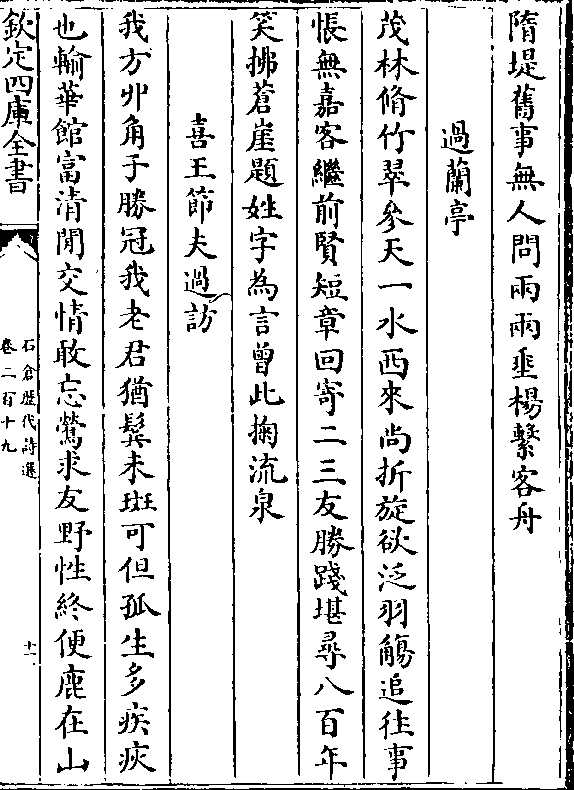 隋堤舊事無人問兩兩垂楊繫客舟
過蘭亭
茂林脩竹翠參天一水西來尚折旋欲泛羽觴追往事
悵無嘉客繼前賢短章回寄二三友勝踐堪尋八百年
笑拂蒼崖題姓字為言曾此掬流泉
喜王節夫過訪
我方丱角子勝冠我老君猶鬂未斑可但孤生多疾疢
也輸華館富清閒交情敢忘鶯求友野性終便鹿在山
欽定四庫全書
石倉歷代詩選
卷二百十九
十一